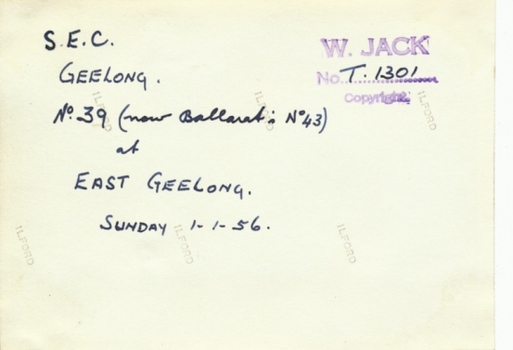 S.E.C.
GEELONG.
Nº 39 (now Ballarat's Nº43)
at
EAST GEELONG.
SUNDAY 1-1-56.
W. JACK
No. T. 1301
Copyright.
ILFORD
ILFORD
ILFORD
ILFORD
ILFORD
ILFORD